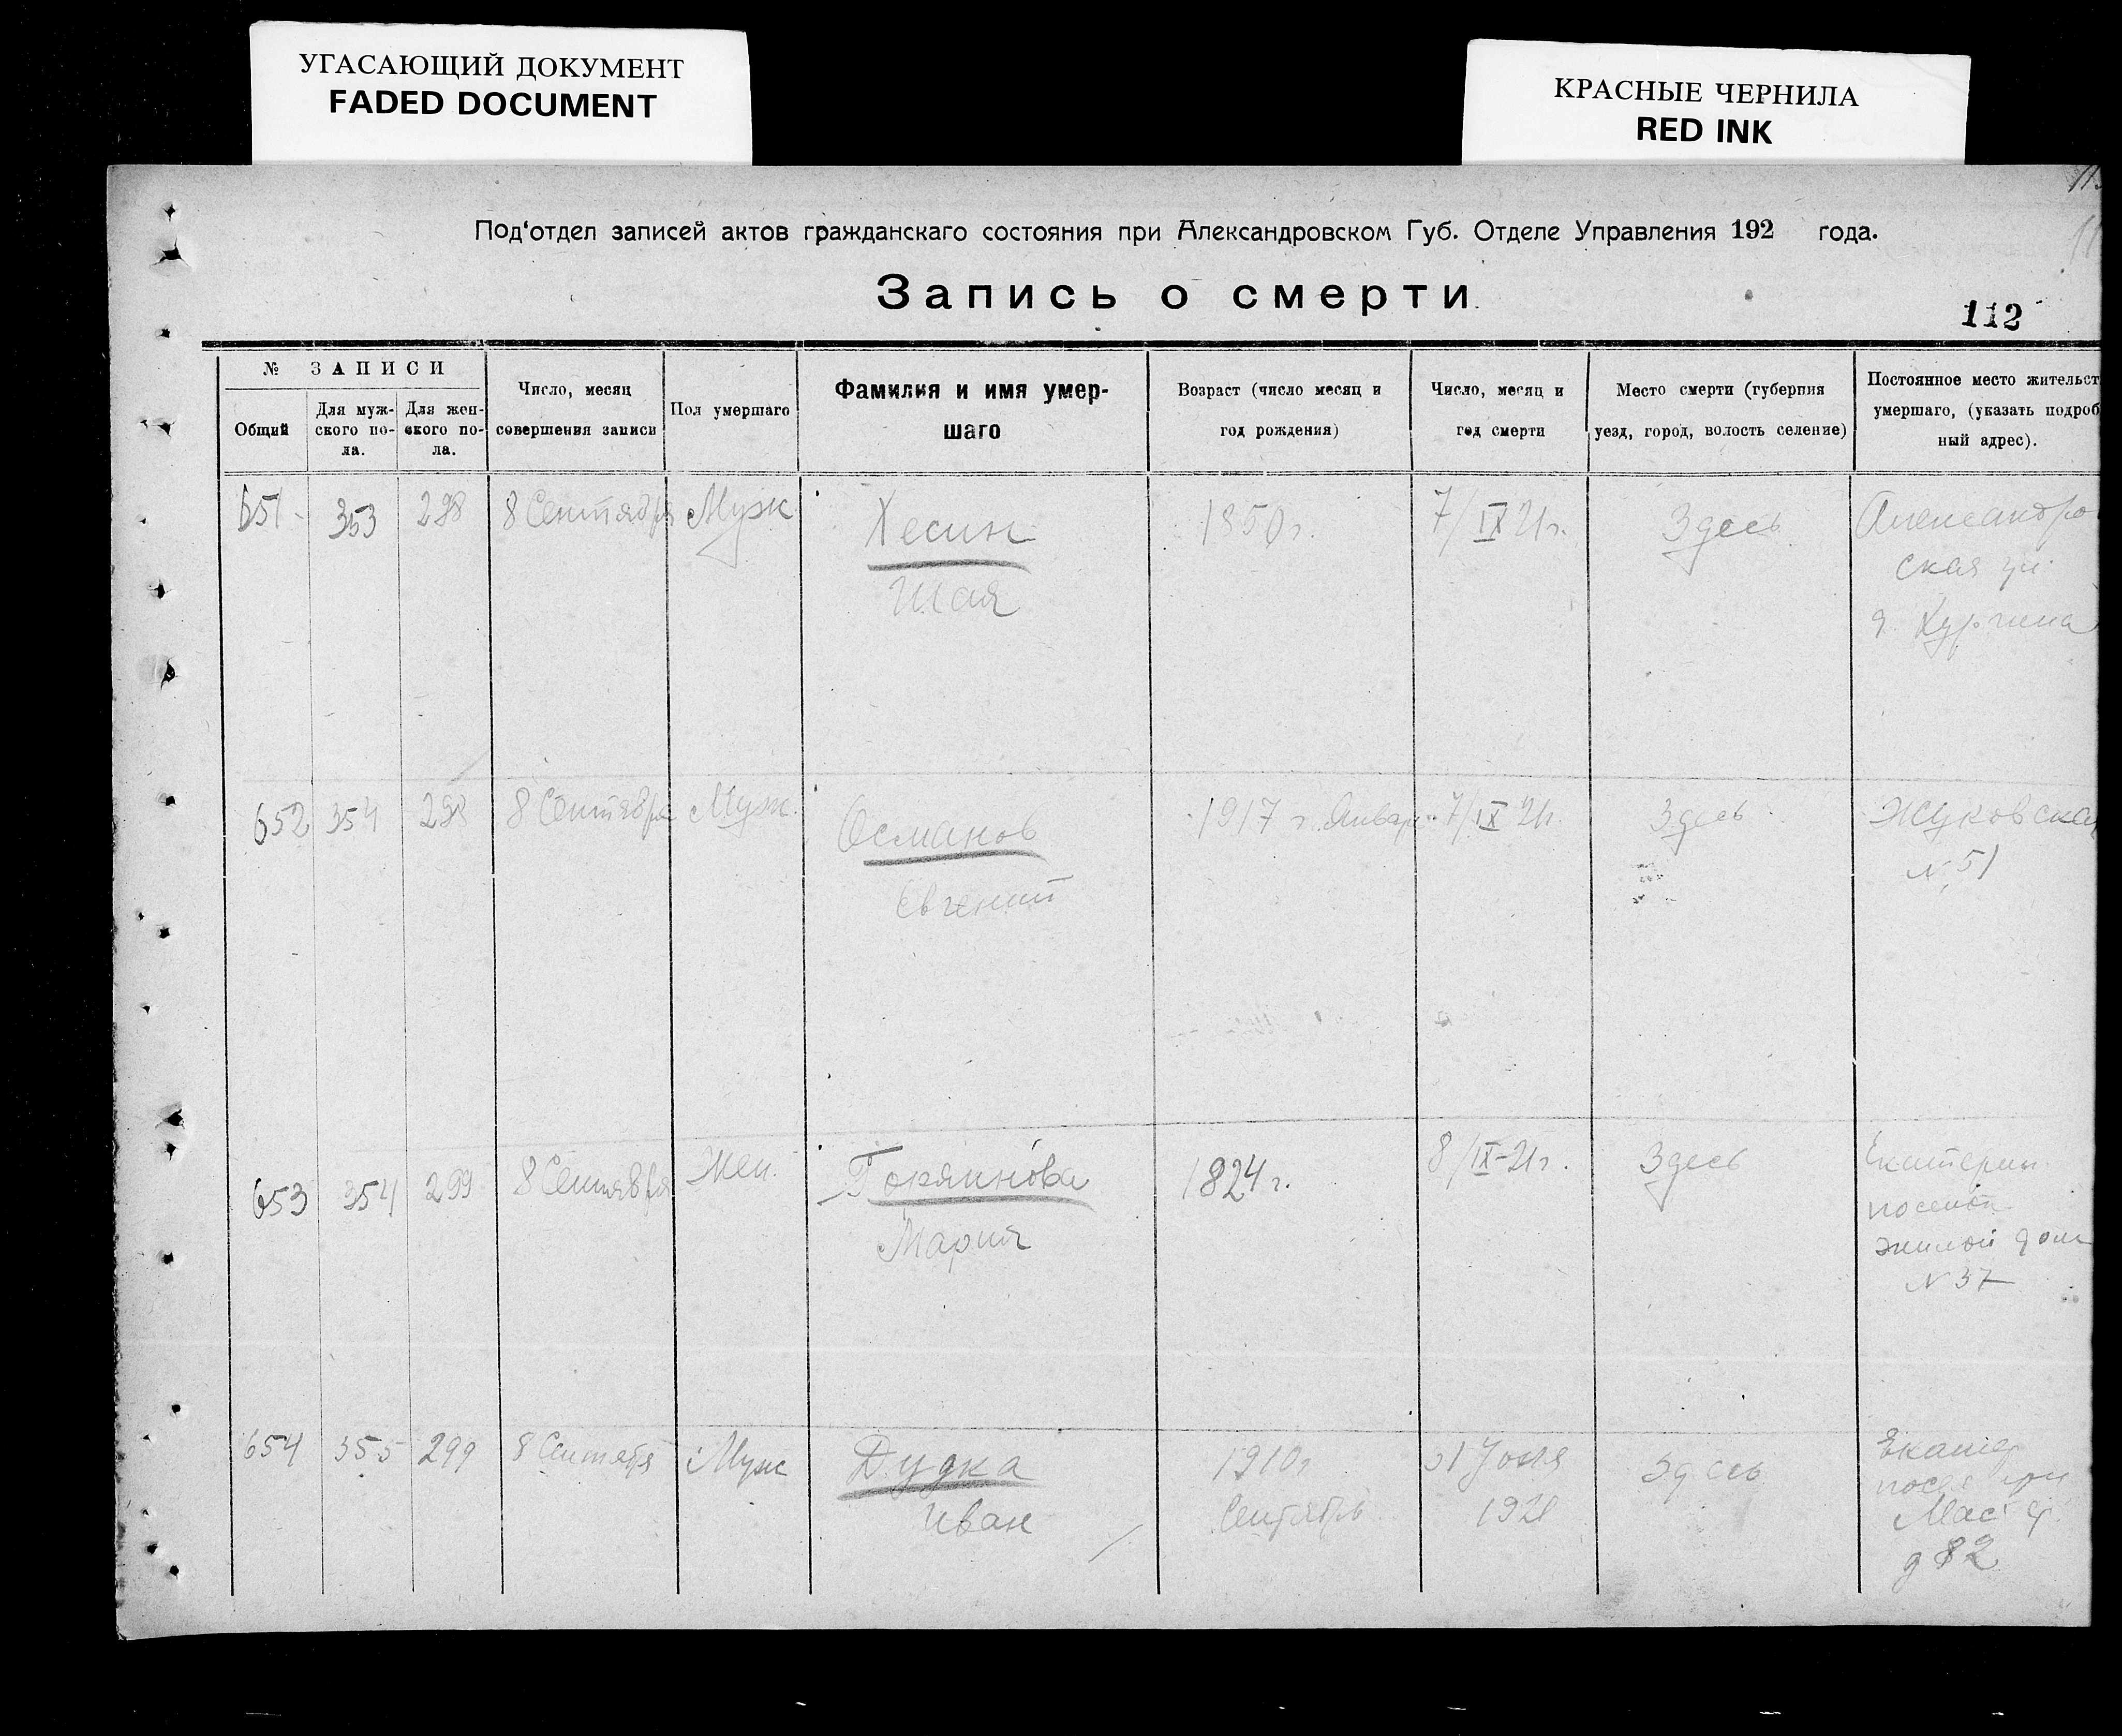 УГАСАЮЩИЙ ДОКУМЕНТ
FADED DOCUMENT
КРАСНЫЕ ЧЕРНИЛА
RED INK
Под‘отдел записей актов гражданскаго состояния при Александровском Губ. Отделе Управления 192 года.
Запись о смерти
112
№ ЗАПИСИ
Общий
Для муж-
ского по-
ла.
Для жен-
ского по-
ла.
Число, месяц
совершения записи
Пол умершаго
Фамилия и имя умер-
шаго
Возраст (число месяц и
год рождения)
Число, месяц и
год смерти
Место смерти (губерния
уезд, город, волость селение)
Постоянное место жительст
умершаго, (указать подроб
ный адрес).
651 353 298 8 Сентября Муж Хесин 1850 г. 7/IX 21 г. Здесь Александро
Шая ская ул.
д.
652 354 298 8 Сентября Муж. Османов 1917 г. Январ 7/IX 21 г. Здесь Жуковская
Евгений № 51
653 354 299 8 Сентября Жен. 1824 г. 8/IX-21 г. Здесь Екатерин
Мария посел
жилой дом
№ 37
654 355 299 8 Сентября Муж Дудка 1910 г. Июля Здесь Екатер
Иван Сентябрь 1921 посел
д 82